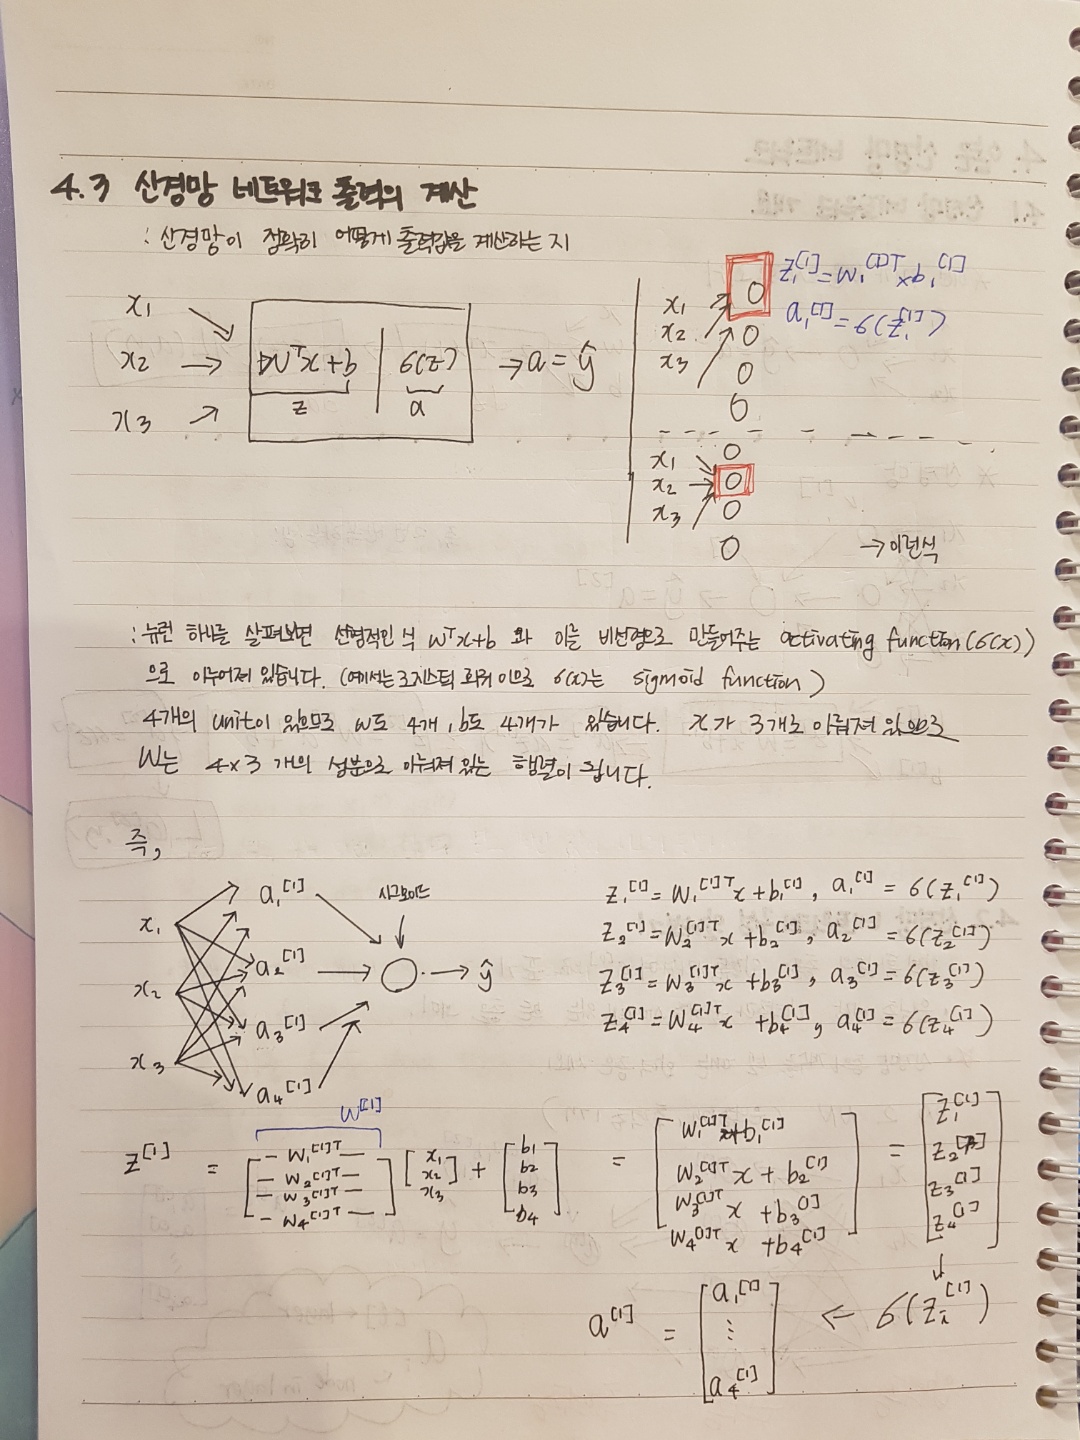 4.3 신경망 네트워크 출력의 계산
: 신경망이 정확히 어떻게 출력값을 계산하는 지
x₁
x₂
x₃
wᵀx+b | σ(z) → a = ŷ
z
a
x₁
x₂
x₃
z₁^[1] = w₁^[1]T x b₁^[1]
a₁^[1] = σ(z₁^[1])
x₁
x₂
x₃
→ 이런식
: 뉴런 하나를 살펴보면 선형적인 식 wᵀx+b 와 이를 비선형으로 만들어주는 activating function (σ(x))
으로 이루어져 있습니다. (예에서는 로지스틱 회귀 이므로 σ(x)는 sigmoid function)
4개의 unit이 있으므로 w도 4개, b도 4개가 있습니다. x가 3개로 이뤄져 있으므로
W는 4x3 개의 성분으로 이뤄져 있는 행렬이 됩니다.
즉,
x₁
x₂
x₃
a₁^[1]
a₂^[1]
a₃^[1]
a₄^[1]
시그모이드
→ ŷ
z₁^[1] = w₁^[1]T x + b₁^[1], a₁^[1] = σ(z₁^[1])
z₂^[1] = w₂^[1]T x + b₂^[1], a₂^[1] = σ(z₂^[1])
z₃^[1] = w₃^[1]T x + b₃^[1], a₃^[1] = σ(z₃^[1])
z₄^[1] = w₄^[1]T x + b₄^[1], a₄^[1] = σ(z₄^[1])
w^[1]
z^[1] = [ — w₁^[1]T — ] [ x₁ ] + [ b₁ ] = [ w₁^[1]T x + b₁^[1] ] = [ z₁^[1] ]
[ — w₂^[1]T — ] [ x₂ ] [ b₂ ] [ w₂^[1]T x + b₂^[1] ] [ z₂^[1] ]
[ — w₃^[1]T — ] [ x₃ ] [ b₃ ] [ w₃^[1]T x + b₃^[1] ] [ z₃^[1] ]
[ — w₄^[1]T — ] [ b₄ ] [ w₄^[1]T x + b₄^[1] ] [ z₄^[1] ]
↓
a^[1] = [ a₁^[1] ⋮ a₄^[1] ] ← σ(zᵢ^[1])